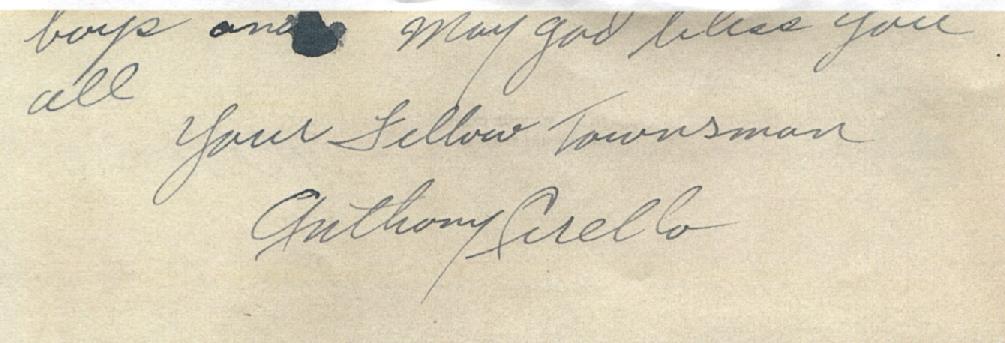 boys and May god bless you
all
Your Fellow Townsman
Anthony Cirello